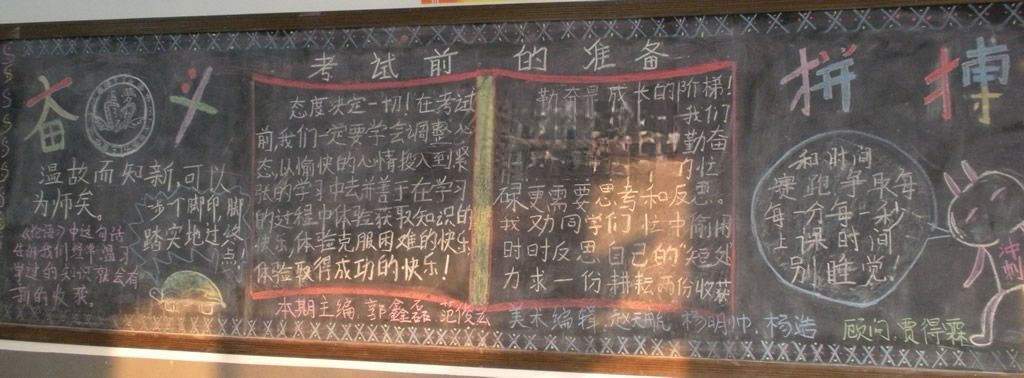 考试前的准备
奋斗
温故而知新,可以
为师矣。
《论语》中这句话
告诉我们经常温习
学过的知识就会有
新的收获。
一步个脚印脚
踏实地过
态度决定一切!在考试
前,我们一定要学会调整心
态,从愉快的心情投入到紧
张的学习中去并善于在学习
的过程中体验获取知识的
快乐,体验克服困难的快乐
体验取得成功的快乐!
勤奋是成长的阶梯!
我们
勤奋
力忙
碌更需要思考和反思。
我劝同学们忙中偷闲
时时反思自己的"短处
力求一份耕耘两份收获
拼搏
和时间
赛跑争取每
每一分每一秒
上课时间
别睡觉!
冲刺
本期主编 郭鑫磊 范俊云
美术编辑 赵天航 杨明帅 杨浩
顾问:贾得霖